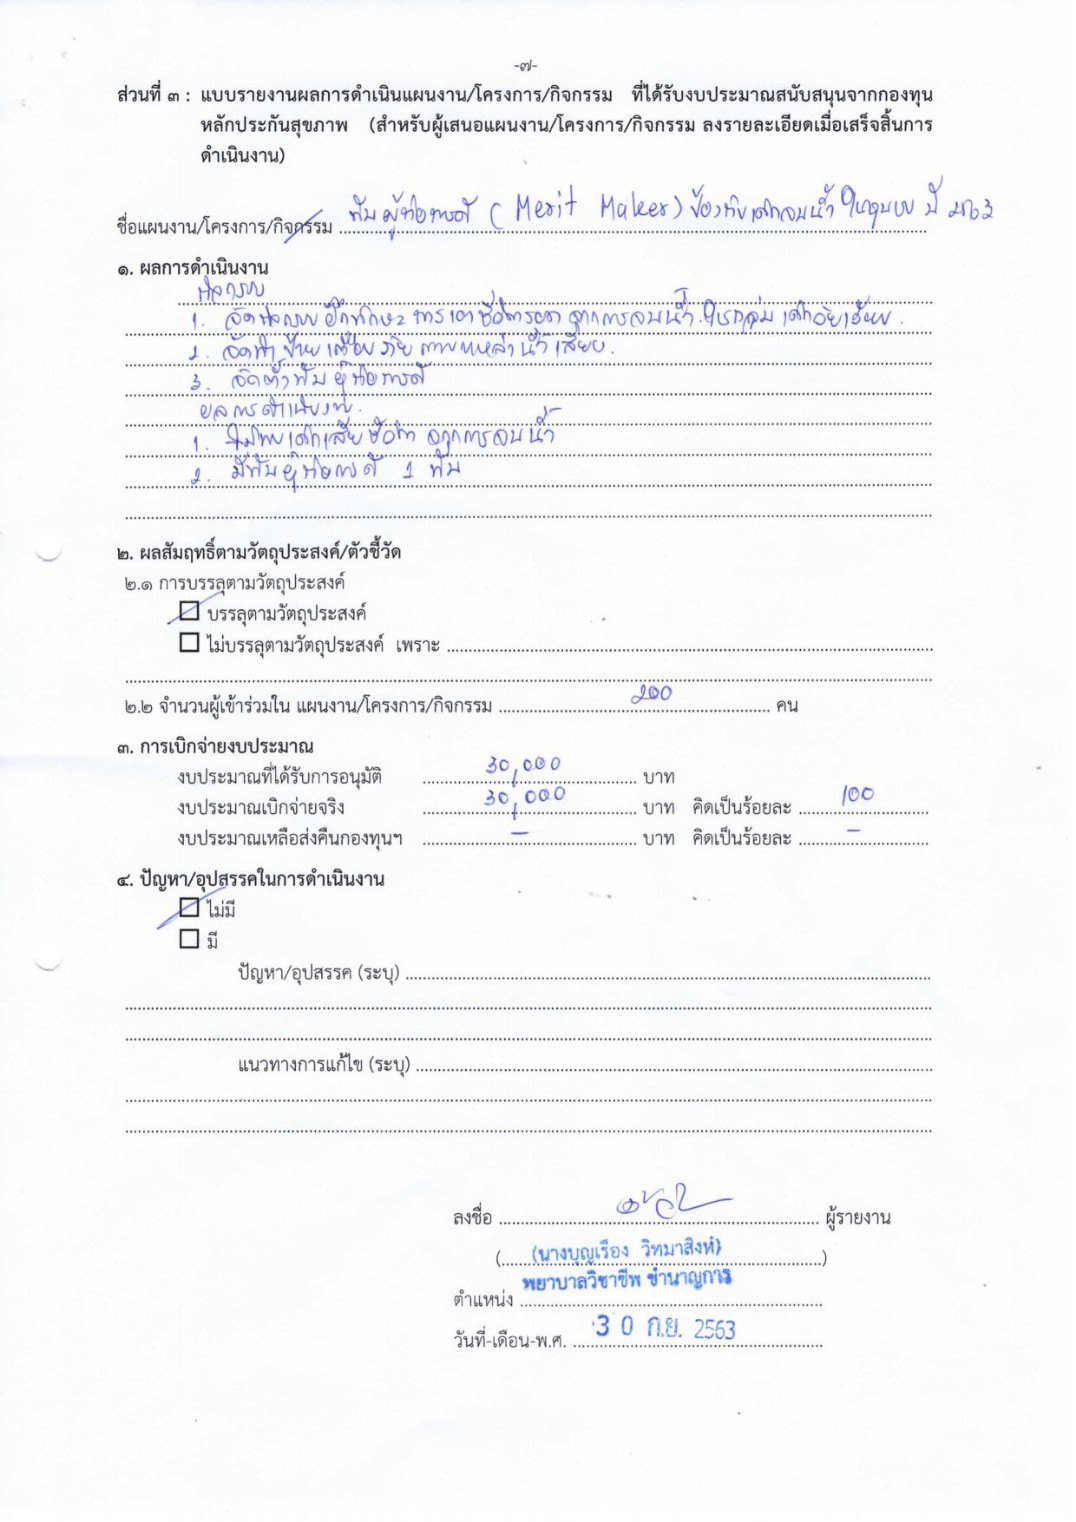 -๗-
ส่วนที่ ๓ : แบบรายงานผลการดำเนินแผนงาน/โครงการ/กิจกรรม ที่ได้รับงบประมาณสนับสนุนจากกองทุน
หลักประกันสุขภาพ (สำหรับผู้เสนอแผนงาน/โครงการ/กิจกรรม ลงรายละเอียดเมื่อเสร็จสิ้นการ
ดำเนินงาน)
ชื่อแผนงาน/โครงการ/กิจกรรม ทีมผู้ก่อการดี (Merit Maker) ป้องกันเด็กจมน้ำ ในชุมชน ปี ๒๕๖๓
๑. ผลการดำเนินงาน
กิจกรรม
1. จัดอบรม ฝึกทักษะ การเอาชีวิตรอด จากการจมน้ำ ในกลุ่ม เด็กวัยเรียน.
2. จัดทำป้ายเตือนภัย ตามแหล่งน้ำเสี่ยง.
3. จัดตั้งทีมผู้ก่อการดี
ผลการดำเนินงาน.
1. ไม่พบเด็กเสียชีวิต จากการจมน้ำ
2. มีทีมผู้ก่อการดี 1 ทีม
๒. ผลสัมฤทธิ์ตามวัตถุประสงค์/ตัวชี้วัด
๒.๑ การบรรลุตามวัตถุประสงค์
บรรลุตามวัตถุประสงค์
ไม่บรรลุตามวัตถุประสงค์ เพราะ
๒.๒ จำนวนผู้เข้าร่วมใน แผนงาน/โครงการ/กิจกรรม 200 คน
๓. การเบิกจ่ายงบประมาณ
งบประมาณที่ได้รับการอนุมัติ 30,000 บาท
งบประมาณเบิกจ่ายจริง 30,000 บาท คิดเป็นร้อยละ 100
งบประมาณเหลือส่งคืนกองทุนฯ - บาท คิดเป็นร้อยละ -
๔. ปัญหา/อุปสรรคในการดำเนินงาน
ไม่มี
มี
ปัญหา/อุปสรรค (ระบุ)
แนวทางการแก้ไข (ระบุ)
ลงชื่อ ผู้รายงาน
(นางบุญเรือง วิทมาสิงห์)
พยาบาลวิชาชีพ ชำนาญการ
ตำแหน่ง
วันที่-เดือน-พ.ศ. 30 ก.ย. 2563